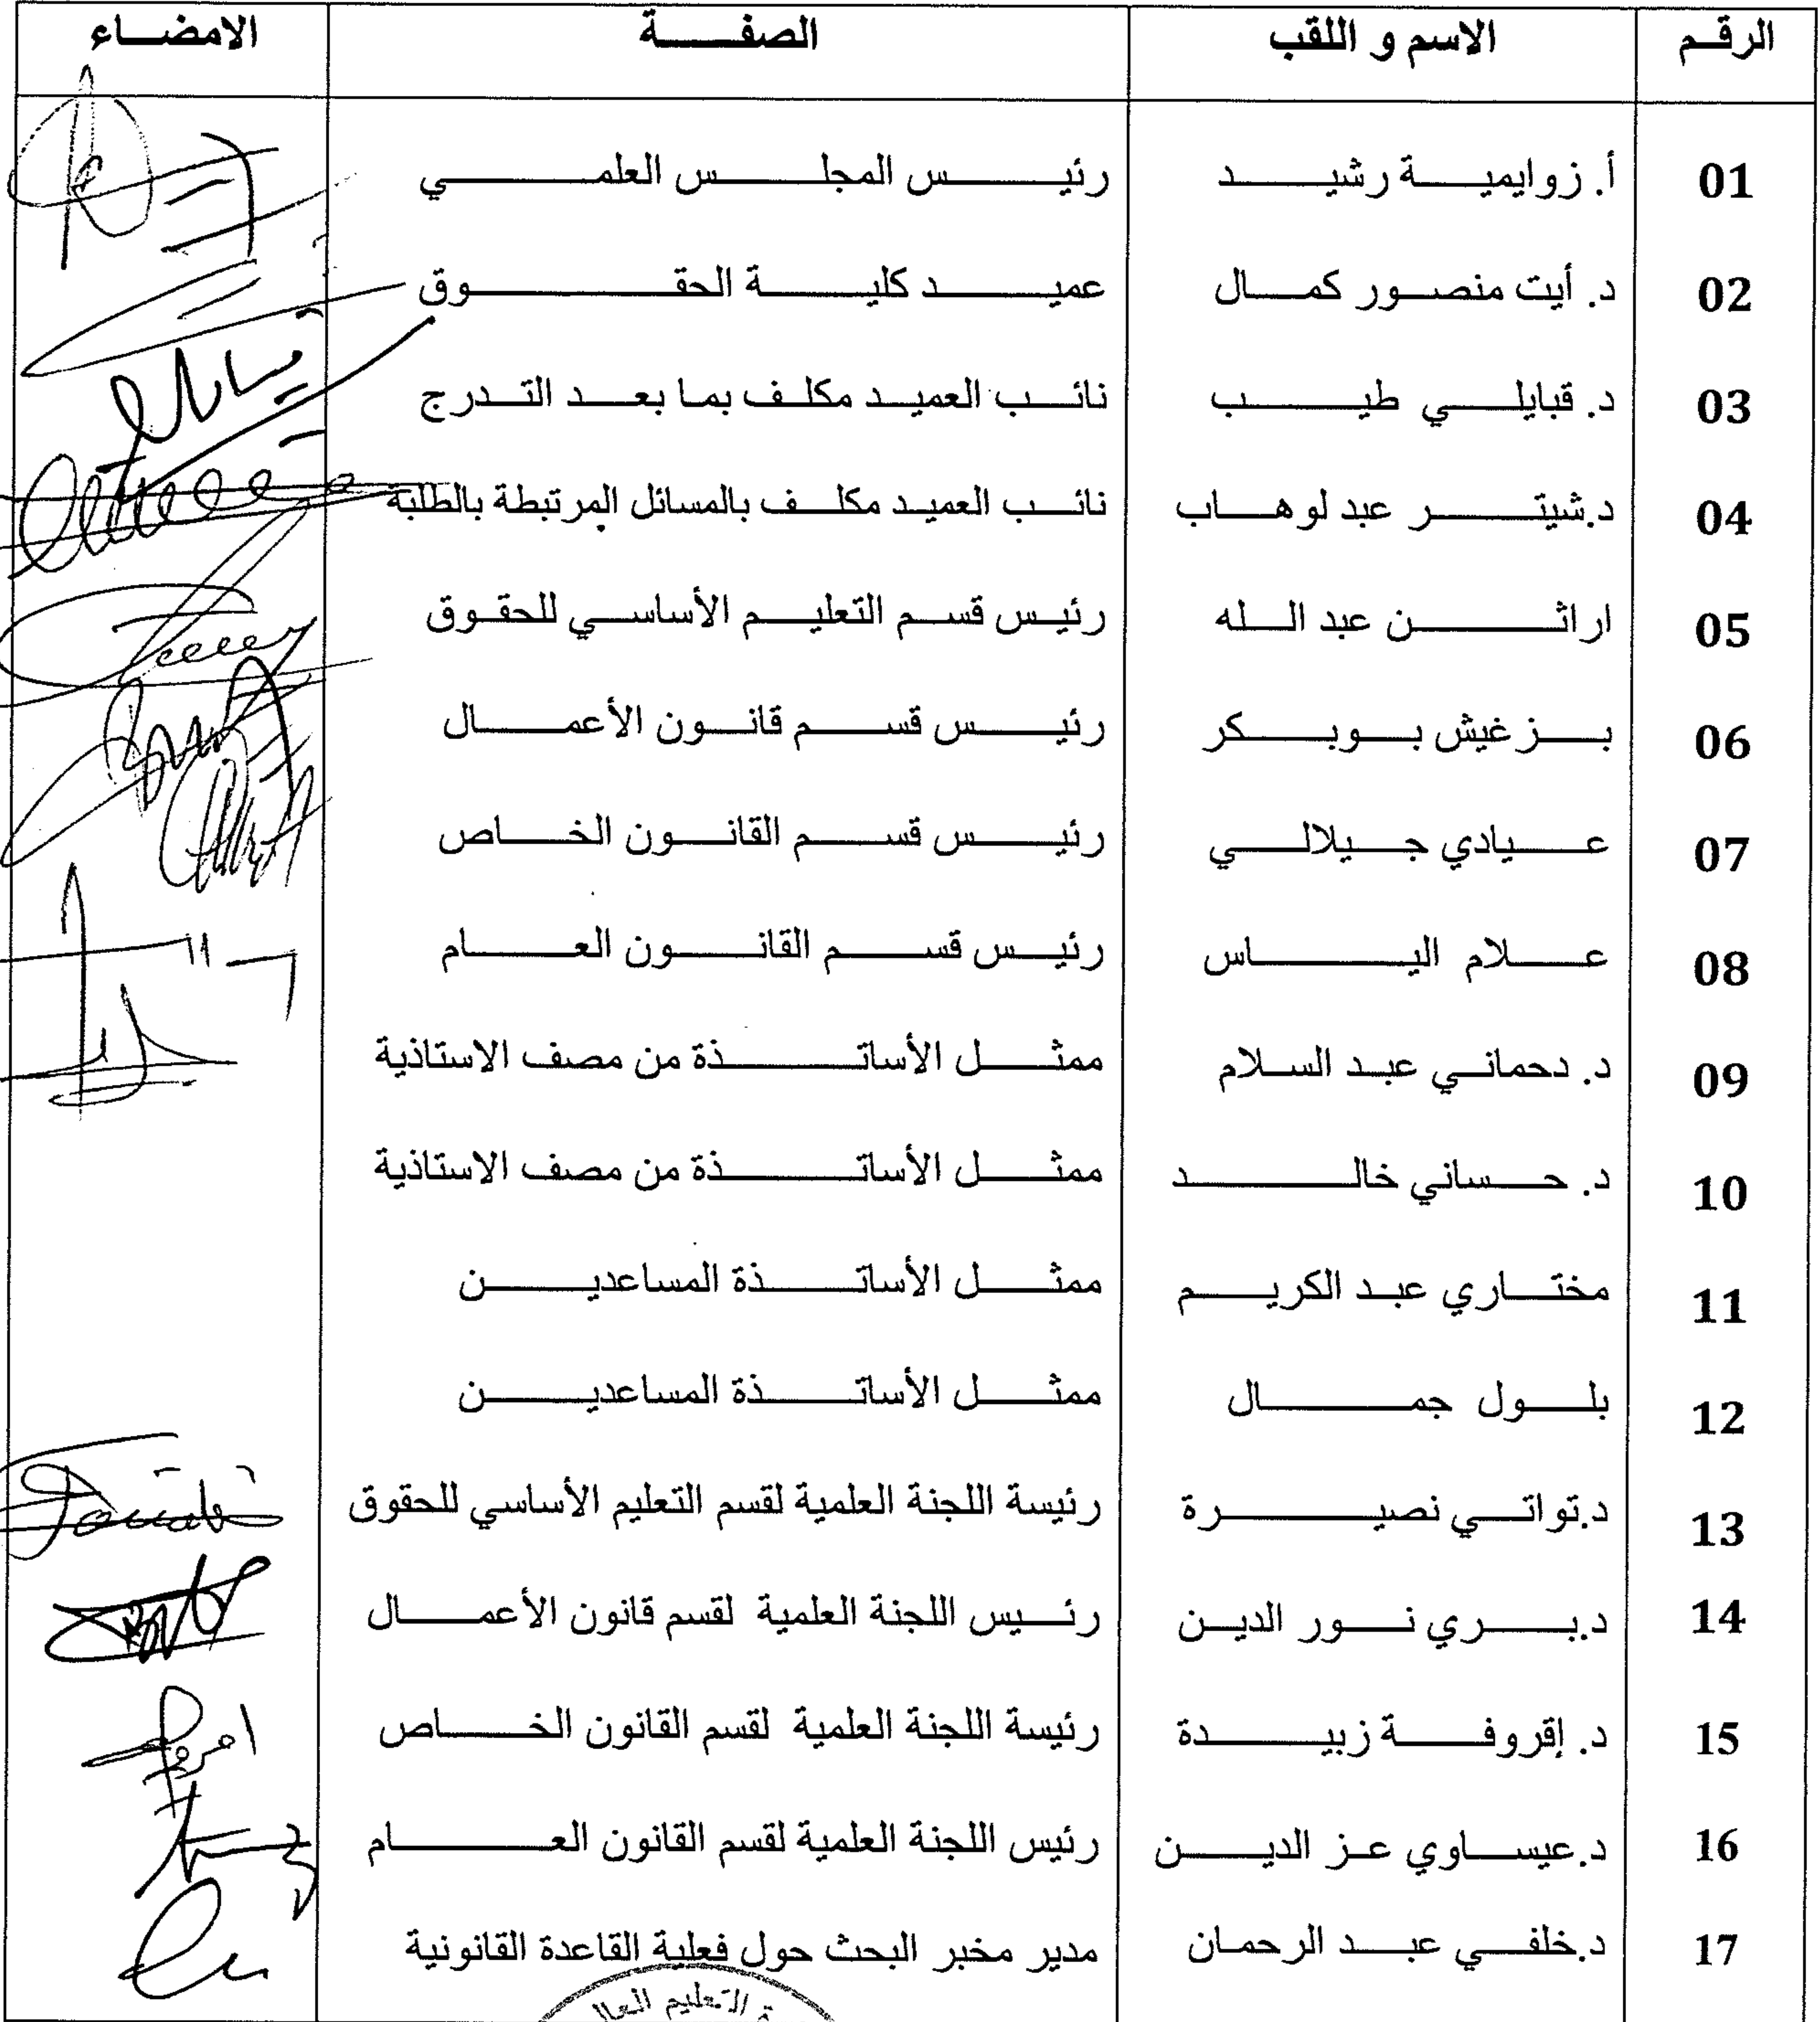 الرقم الاسم و اللقب الصفة الامضاء
01 أ. زوايمية رشيد رئيس المجلس العلمي
02 د. أيت منصور كمال عميد كلية الحقوق
03 د. قبايلي طيب نائب العميد مكلف بما بعد التدرج
04 د.شيتر عبد لوهاب نائب العميد مكلف بالمسائل المرتبطة بالطلبة
05 اراثن عبد الله رئيس قسم التعليم الأساسي للحقوق
06 بزغيش بوبكر رئيس قسم قانون الأعمال
07 عيادي جيلالي رئيس قسم القانون الخاص
08 علام الياس رئيس قسم القانون العام
09 د. دحماني عبد السلام ممثل الأساتذة من مصف الاستاذية
10 د. حساني خالد ممثل الأساتذة من مصف الاستاذية
11 مختاري عبد الكريم ممثل الأساتذة المساعدين
12 بلول جمال ممثل الأساتذة المساعدين
13 د.تواتي نصيرة رئيسة اللجنة العلمية لقسم التعليم الأساسي للحقوق
14 د.بري نور الدين رئيس اللجنة العلمية لقسم قانون الأعمال
15 د. إقروفة زبيدة رئيسة اللجنة العلمية لقسم القانون الخاص
16 د.عيساوي عز الدين رئيس اللجنة العلمية لقسم القانون العام
17 د.خلفي عبد الرحمان مدير مخبر البحث حول فعلية القاعدة القانونية
التعليم العال